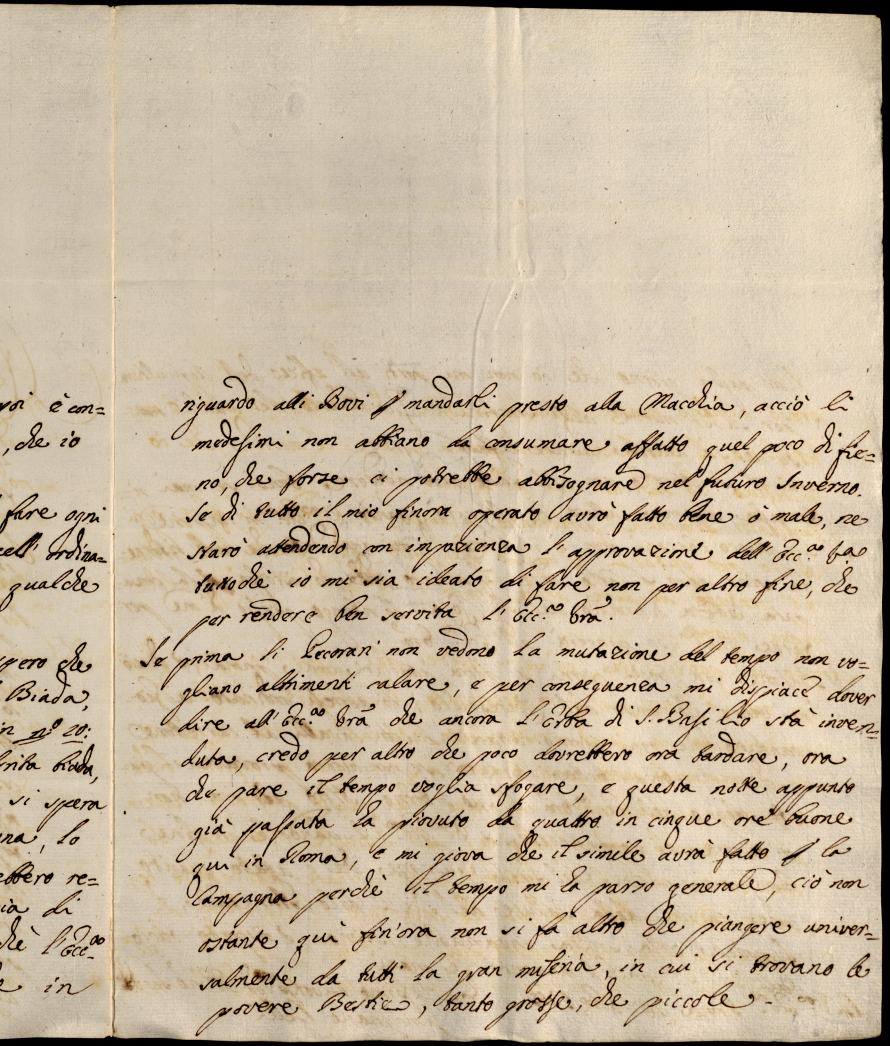 voi è con=
, che io
fare ogni
nell' ordina=
qualche
spero che
Biada,
in nº 20:
biada,
si spera
lo
ebbero re=
ia di
chè l'Ecc.ᵃ
in
riguardo alli Bovi p mandarli presto alla Macchia, acciò li
medesimi non abbiano da consumare affatto quel poco di fie=
no, che forse ci potrebbe abbisognare nel futuro Inverno.
Se di tutto il mio finora operato avrò fatto bene ò male, ne
starò attendendo con impazienza l'approvazione dell' Ecc.ᵃ Vra
tuttochè io mi sia ideato di fare non per altro fine, che
per rendere ben servita l'Ecc.ᵃ Vra.
Se prima li Pecorari non vedono la mutazione del tempo non vo=
gliano altrimenti calare, e per conseguenza mi dispiace dover
dire all' Ecc.ᵃ Vra che ancora l'Erba di S. Basilio stà inven=
duta, credo per altro che poco dovrebbero ora tardare, ora
che pare il tempo voglia sfogare, e questa notte appunto
già passata ha piovuto da quattro in cinque ore buone
quì in Roma, e mi giova che il simile avrà fatto p la
Campagna perchè il tempo mi ha parso generale, ciò non
ostante quì fin'ora non si fà altro che piangere univer=
salmente da tutti la gran miseria, in cui si trovano le
povere Bestie, tanto grosse, che piccole.